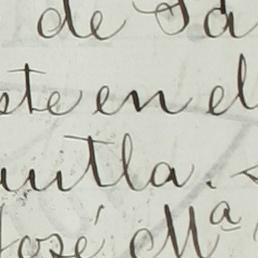 de Sa
ste en el
utla.
José Mª